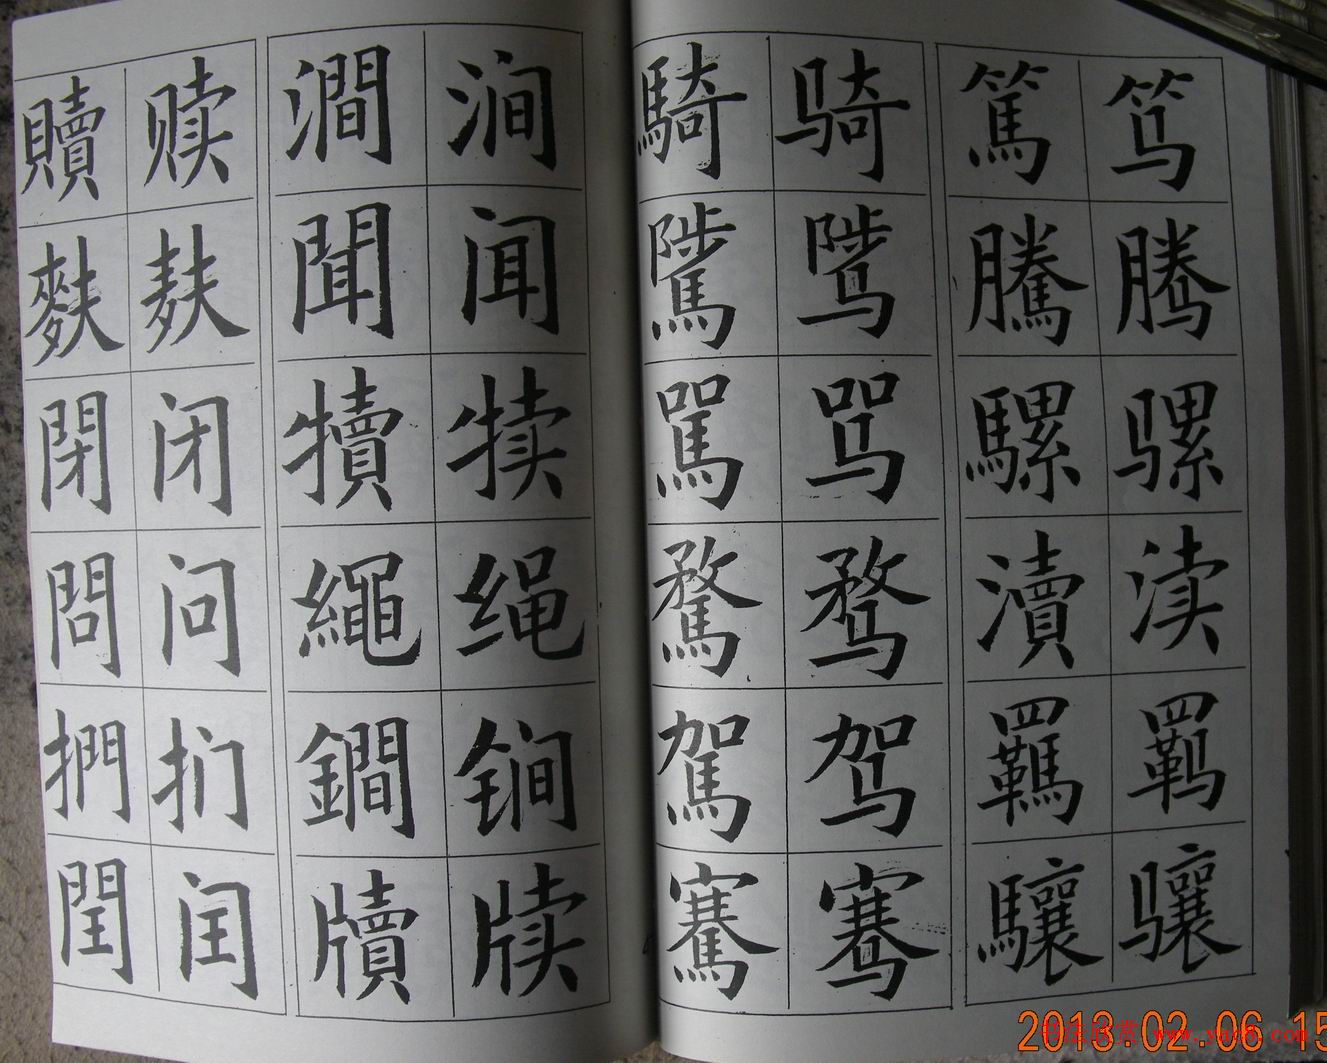 笃腾骡渎羁骧
篤騰騾瀆羈驤
骑骘骂骛驾骞
騎騭駡騖駕騫
涧闻犊绳锏牍
澗聞犢繩鐧牘
赎麸闭问扪闰
贖麩閉問捫閏
2013.02.06 15